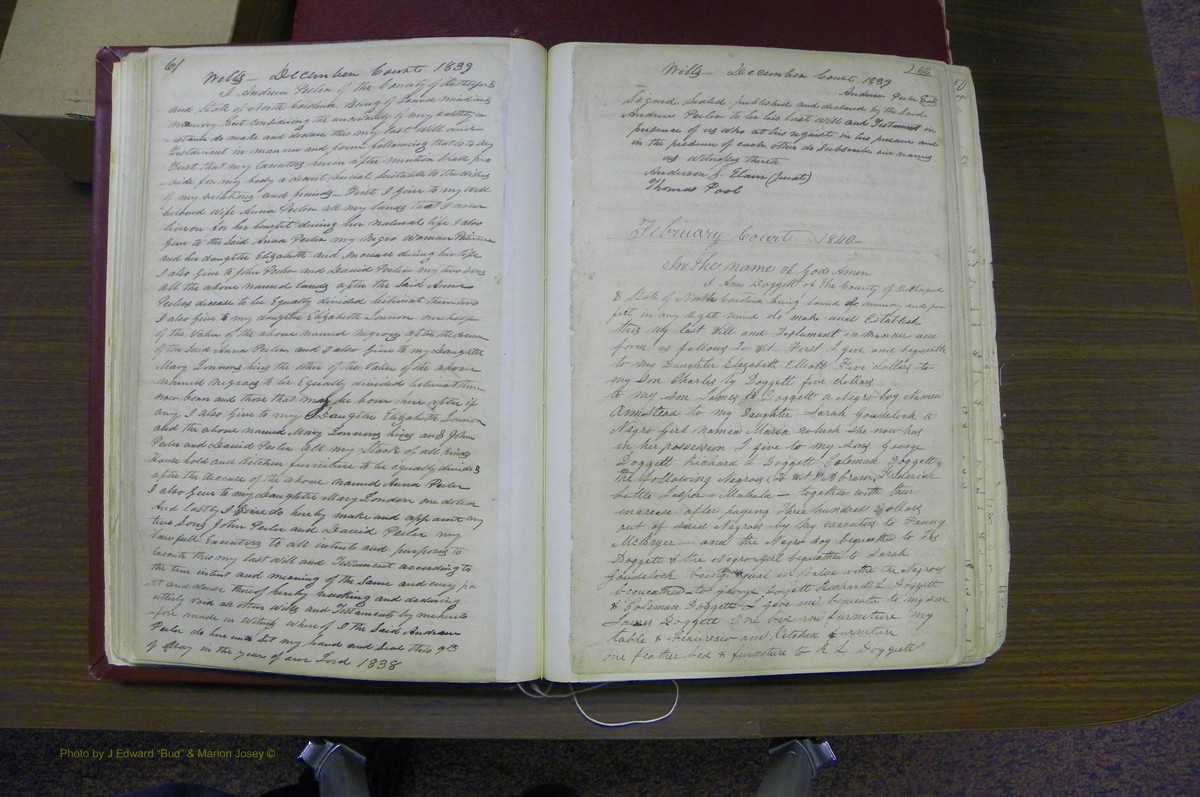 61
Wills — December Court 1839
I Andrew Peeler of the County of Rutherford
and State of North Carolina being of Sound mind and
memory but Considering the uncertainty of my earthly ex
istance do make and declare this my Last Will and
Testament in manner and form following that is to say
First that my Executors herin after mention Shall pro
vide for my body a decent burial Suitable to the wishes
of my relations and friends — First I give to my well
beloved Wife Anna Peeler all my lands that I now
live on for her benefit during her natural life I also
Give to the Said Anna Peeler my Negro Woman
and her daughter Elizabeth and increase during her life
I also give to John Peeler and David Peeler my two Sons
all the above named lands after the Said Anna
Peelers decease to be Equally divided between them two
I also give to my daughter Elizabeth London one half
of the Value of the above named Negroes after the decease
of the Said Anna Peeler and I also give to my Daughter
Mary Londons hirs the other of the Value of the above
named Negroes to be Equally divided between them
now born and those that may be born here after if
any I also Give to my Daughter Elizabeth London
and the above named Mary Londons hires and John
Peeler and David Peeler all my Stock of all kinds
House hold and Kitchen furniture to be equally divided
after the decease of the above named Anna Peeler
I also give to my Daughter Mary London one dollar
And lastly I do hereby make and appoint my
two Sons John Peeler and David Peeler my
lawfull Executors to all intents and purposes to
Execute this my last will and Testament according to
the true intent and meaning of the Same and every pa
rt and clause thereof hereby revoking and declaring
utterly void all other Wills and Testaments by me hereto
fore made in Witness whereof I the Said Andrew
Peeler do here unto Set my hand and Seal this 9th
of May in the year of our Lord 1838
62
Wills — December Court 1839
Andrew Peeler Seal
Signed Sealed published and declared by the Said
Andrew Peeler to be his last will and Testament in
presence of us who at his request in his presence and
in the presence of each other do Subscribe our names
as Witnesses thereto
Anderson Elam (Jurat)
Thomas Pool
February Court 1840 —
In the name of God Amen
I Ann Doggett of the County of Rutherford
& State of North Carolina being Sound of memory and per
fect in my right mind do make and Establish
this my last Will and Testament in manner and
form as follows To Wit First I give and bequeath
to my Daughter Elizabeth Elliott Five dollars to
my Son Charles Ty Doggett five dollars
to my Son James Doggett a Negro boy Named
Armstead to my Daughter Sarah Goudelock a
Negro Girl Named Maria which She now has
in her possession I give to my Sons George
Doggett Richard L Doggett Coleman Doggett
the following Negroes (To Wit) Abram, Frederick
Little Jasper — Mahala — together with their
increase after paying Three hundred dollars
out of said Negroes by my executors to Fanny
McBryer — and the Negro boy bequethed to Jas
Doggett & the Negro Girl bequethed to Sarah
Goudelock being equal in Value with the Negroes
bequeathed to George Doggett Richard L Doggett
& Coleman Doggett I give and bequeath to my son
James Doggett One bed and furniture my
table & Beaureau and Kitchen furniture
one feather bed & furniture to R L Doggett
Photo by J Edward "Bud" & Marion Josey ©